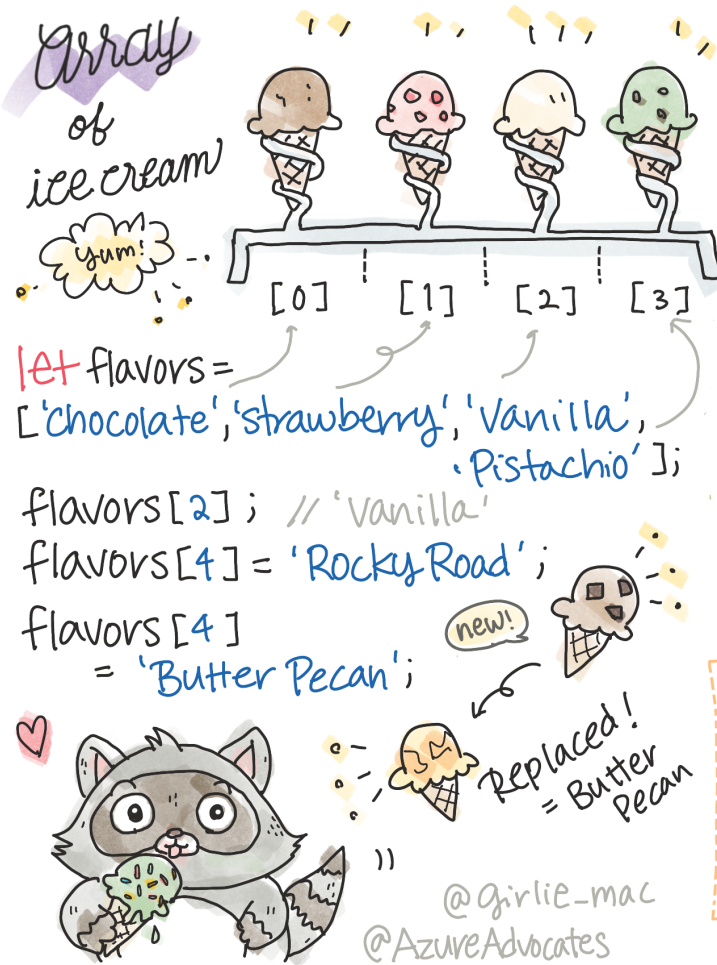 array
of
ice cream
yum!
[0] [1] [2] [3]
let flavors =
['chocolate', 'strawberry', 'Vanilla',
'Pistachio'];
flavors[2]; // 'Vanilla'
flavors[4] = 'Rocky Road';
new!
flavors[4]
= 'Butter Pecan';
Replaced!
= Butter
Pecan
@girlie_mac
@AzureAdvocates